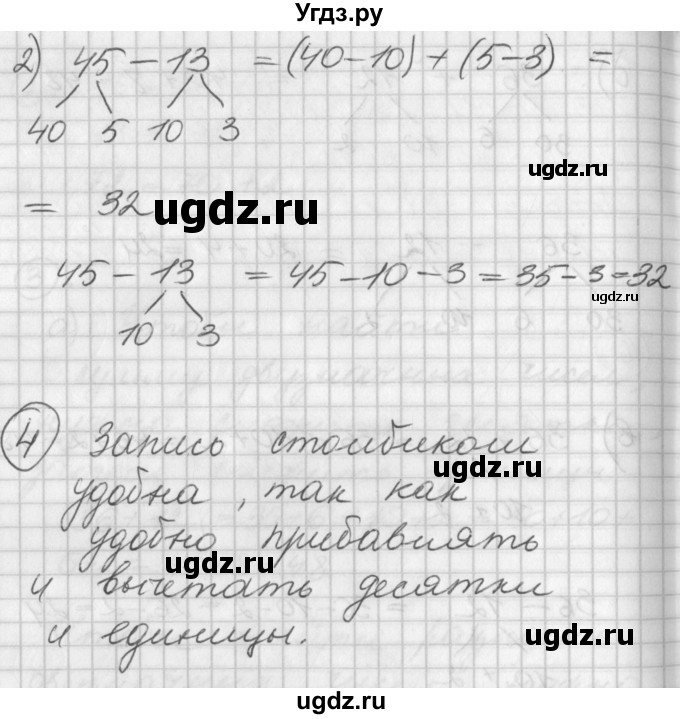 Угдз.ру
2) 45 – 13 = (40 – 10) + (5 – 3) =
40 5 10 3
ugdz.ru
= 32
ugdz.ru
45 – 13 = 45 – 10 – 3 = 35 – 3 = 32
ugdz.ru
10 3
4 Запись столбиком
ugdz.ru
удобна, так как
удобно прибавлять
ugdz.ru
и вычетать десятки
и единицы.
ugdz.ru
ugdz.ru